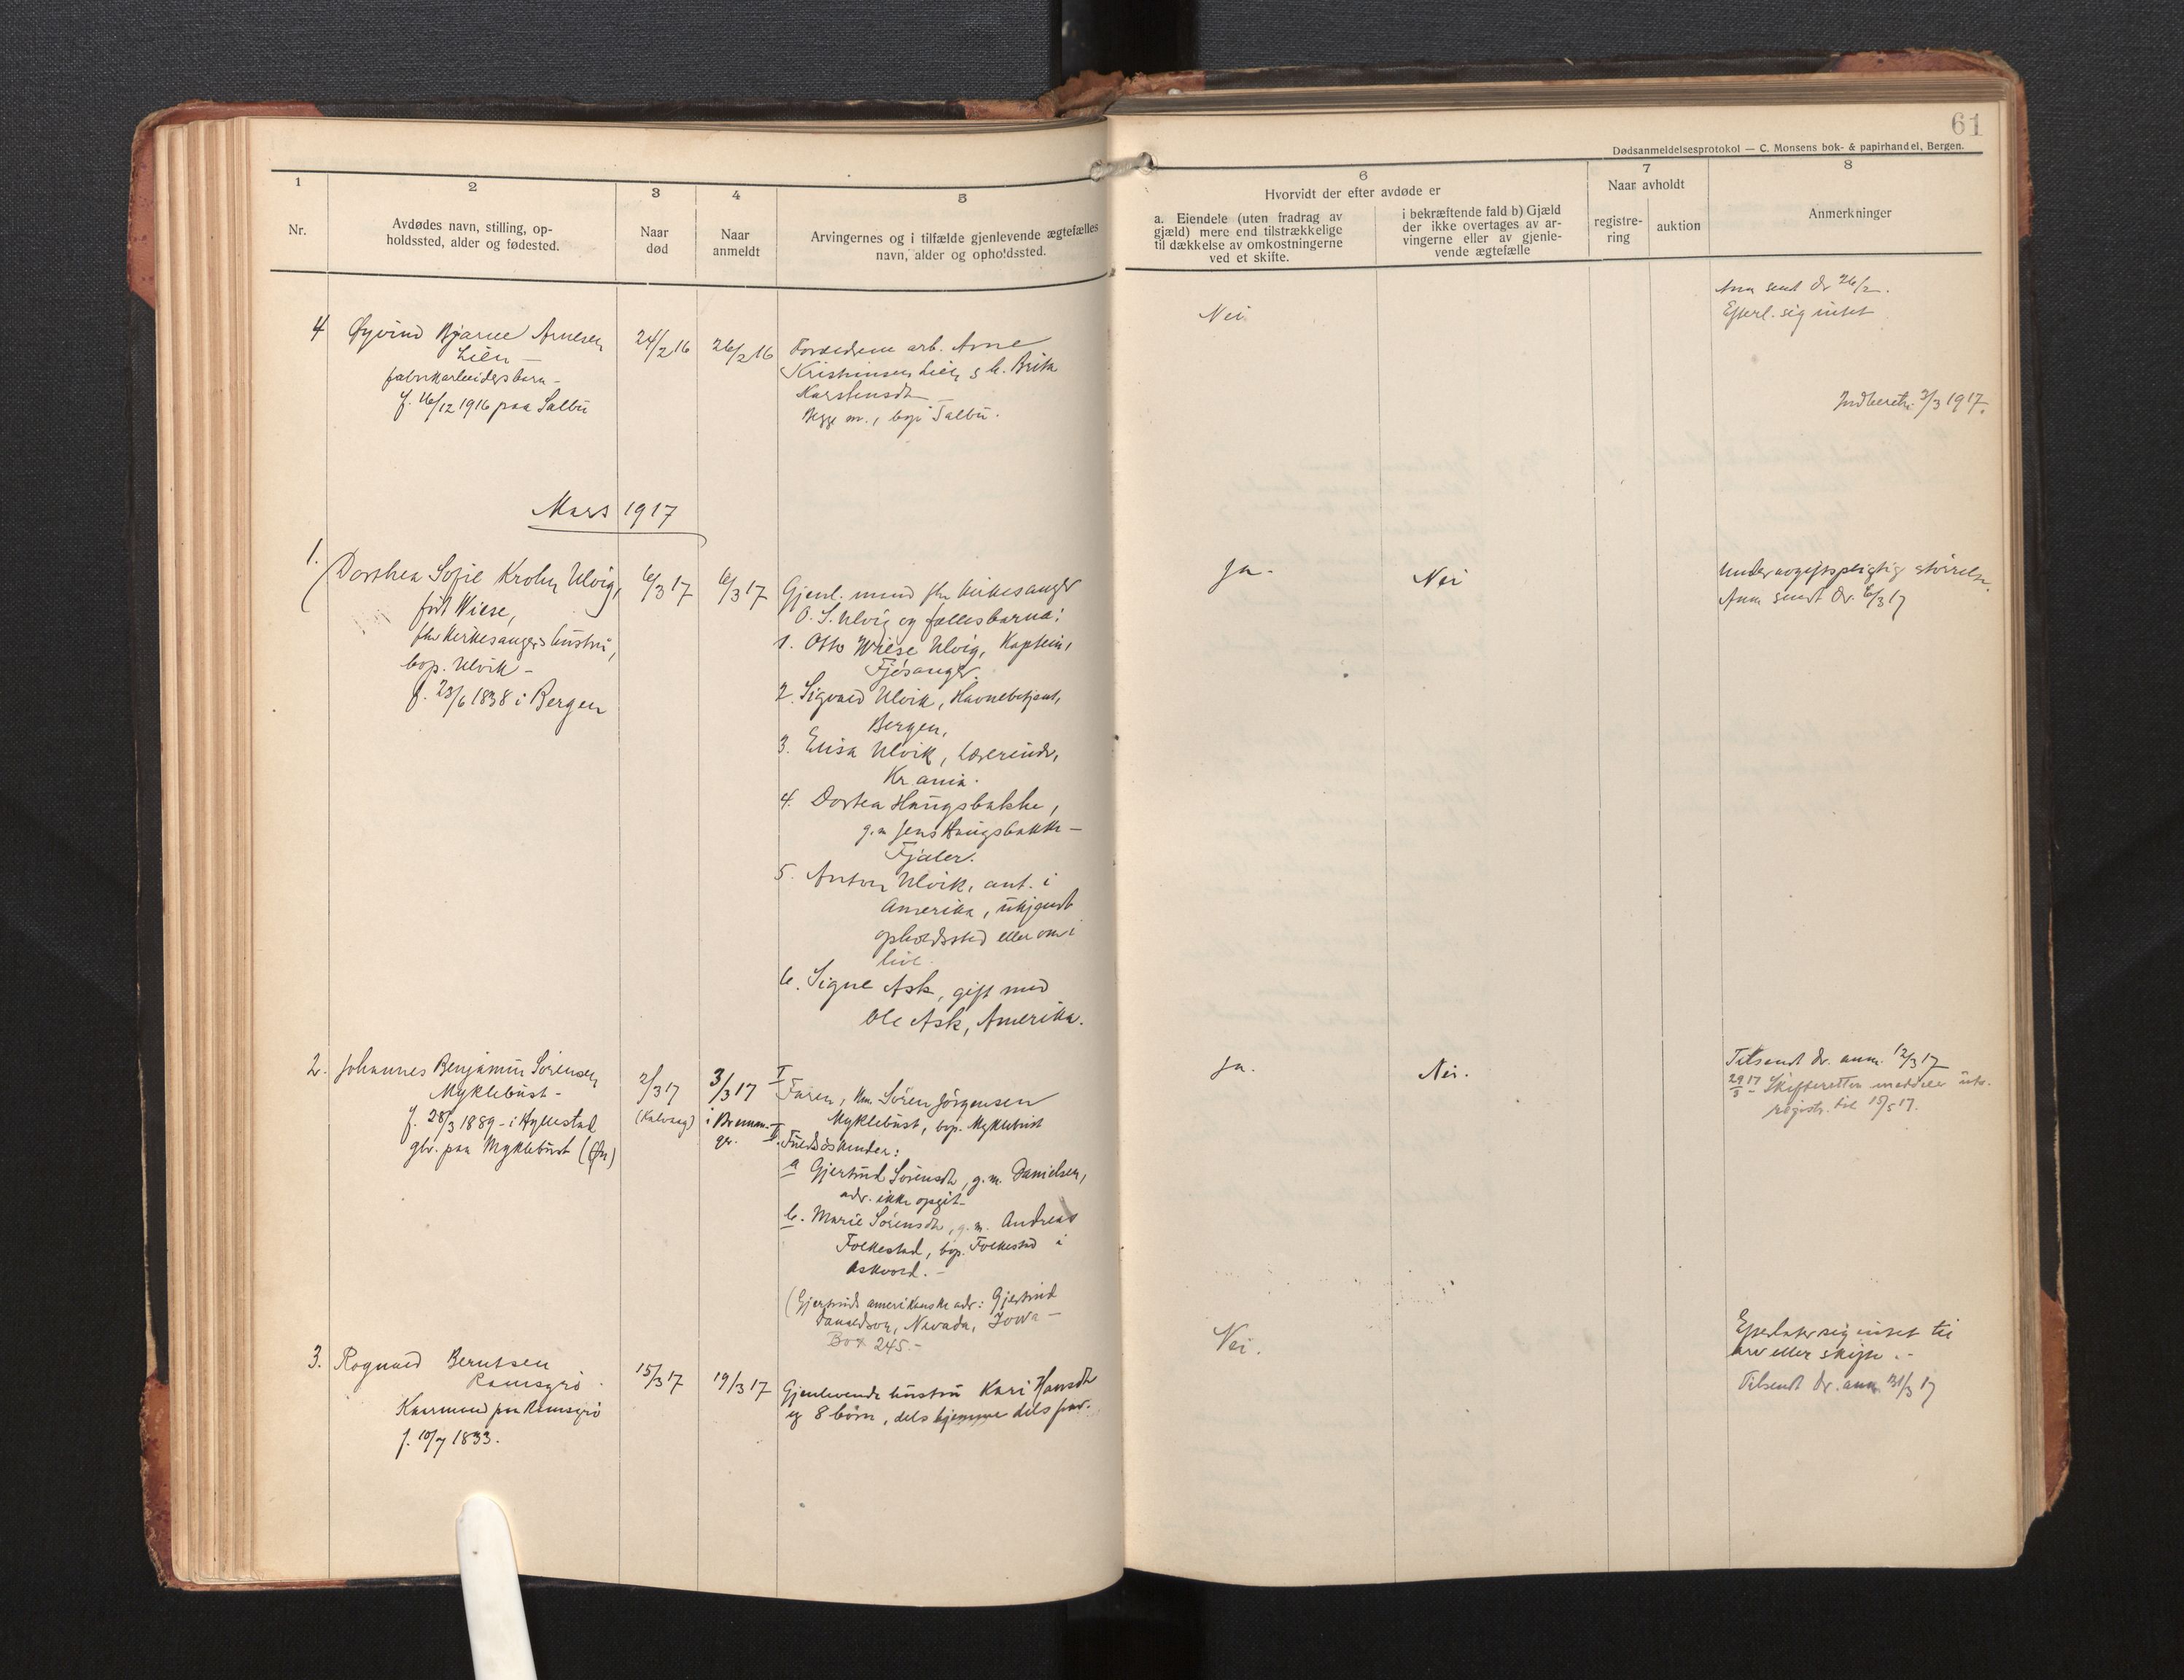 61
Dødsanmeldelsesprotokol — C. Monsens bok- & papirhandel, Bergen.
1
Nr.
2
Avdødes navn, stilling, op-
holdssted, alder og fødested.
3
Naar
død
4
Naar
anmeldt
5
Arvingernes og i tilfælde gjenlevende ægtefælles
navn, alder og opholdssted.
6
Hvorvidt der efter avdøde er
a. Eiendele (uten fradrag av
gjæld) mere end tilstrækkelige
til dækkelse av omkostningerne
ved et skifte.
i bekræftende fald b) Gjæld
der ikke overtages av ar-
vingerne eller av gjenle-
vende ægtefælle
7
Naar avholdt
registre-
ring
auktion
8
Anmerkninger
4
Øyvind Bjarne Arnesen
Lien —
fabrikarbeidersbarn —
f. 16/12 1916 paa Salbu
24/2 16
26/2 16
Forældrene arb. Arne
Kristiansen Lien & h. Brita
Karstensdtr
Begge m., bop. Salbu.
Nei
Anm sendt Dr 26/2.
Efterl. sig intet
Indberetn. 3/3 1917.
Mars 1917
1.
Dorthea Sofie Krohn Ulvig,
født Wiese,
fhv kirkesangers hustru,
bop. Ulvik —
f. 23/6 1838 i Bergen
6/3 17
6/3 17
Gjenl. mand fhv kirkesanger
O. S. Ulvig og fællesbarna:
1. Otto Wiese Ulvig, Kaptein,
Fjøsanger.
2. Sigvard Ulvik, Havnebetjent,
Bergen,
3. Elisa Ulvik, lærerinde,
Kr.ania.
4. Dortea Haugsbakke,
g.m Jens Haugsbakke —
Fjaler.
5. Anton Ulvik, ant. i
Amerika, ukjendt
opholdssted eller om i
live.
6. Signe Ask, gift med
Ole Ask, Amerika.
Ja.
Nei
Under avgiftspligtig størrelse.
Anm sendt Dr. 6/3 17
2.
Johannes Benjamin Sørensen
Myklebust —
f. 28/3 1889 — i Hyllestad
gbr. paa Myklebust
2/3 17
(Kalvaag)
3/3 17
i Breman-
ger.
I
Faren, Søren Jørgensen
Myklebust, bop. Myklebust
II. Fuldsøskender:
a Gjertrud Sørensdtr, g.m. Danielsen,
adr. ikke opgit —
b. Marie Sørensdtr, g.m. Andreas
Folkestad, bop. Folkestad i
Askvoll. —
(Gjertruds amerikanske adr: Gjertrud
Danielson, Nevada, Iowa —
Box 245. —
Ja.
Nei.
Tilsendt dr. anm. 12/3 17
29/3 17 Skifteretten meddeler uts.
registr. til 15/5 17.
3.
Rognald Berntsen
Ramsgrø
Kaarmand paa Ramsgrø
f. 10/7 1833.
15/3 17
19/3 17
Gjenlevende hustru Kari Hansdtr
og 8 børn, dels hjemme dels
Nei.
Efterlater sig intet til
arv eller skifte. —
Tilsendt Dr. anm 31/3 17